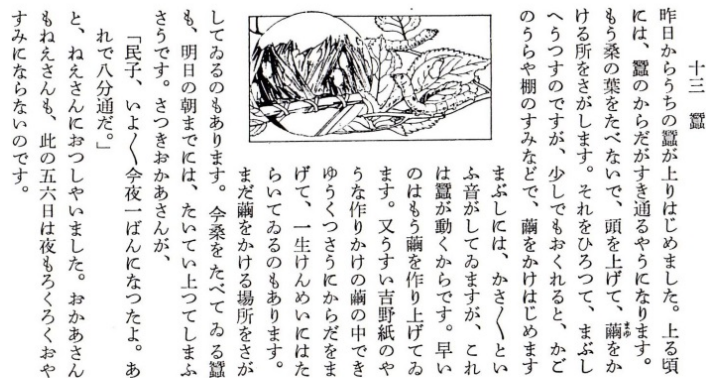 十三　蠶
昨日からうちの蠶が上りはじめました。上る頃
には、蠶のからだがすき通るやうになります。
もう桑の葉をたべないで、頭を上げて、繭をか
まゆ
ける所をさがします。それをひろつて、まぶし
へうつすのですが、少しでもおくれると、かご
のうらや棚のすみなどで、繭をかけはじめます
まぶしには、かさ〱とい
ふ音がしてゐますが、これ
は蠶が動くからです。早い
のはもう繭を作り上げてゐ
ます。又うすい吉野紙のや
うな作りかけの繭の中でき
ゆうくつさうにからだをま
げて、一生けんめいにはた
らいてゐるのもあります。
まだ繭をかける場所をさが
してゐるのもあります。今桑をたべてゐる蠶
も、明日の朝までには、たいてい上つてしまふ
さうです。さつきおかあさんが、
「民子、いよ〱今夜一ばんになつたよ。あ
れで八分通だ。」
と、ねえさんにおつしやいました。おかあさん
もねえさんも、此の五六日は夜もろくろくおや
すみにならないのです。